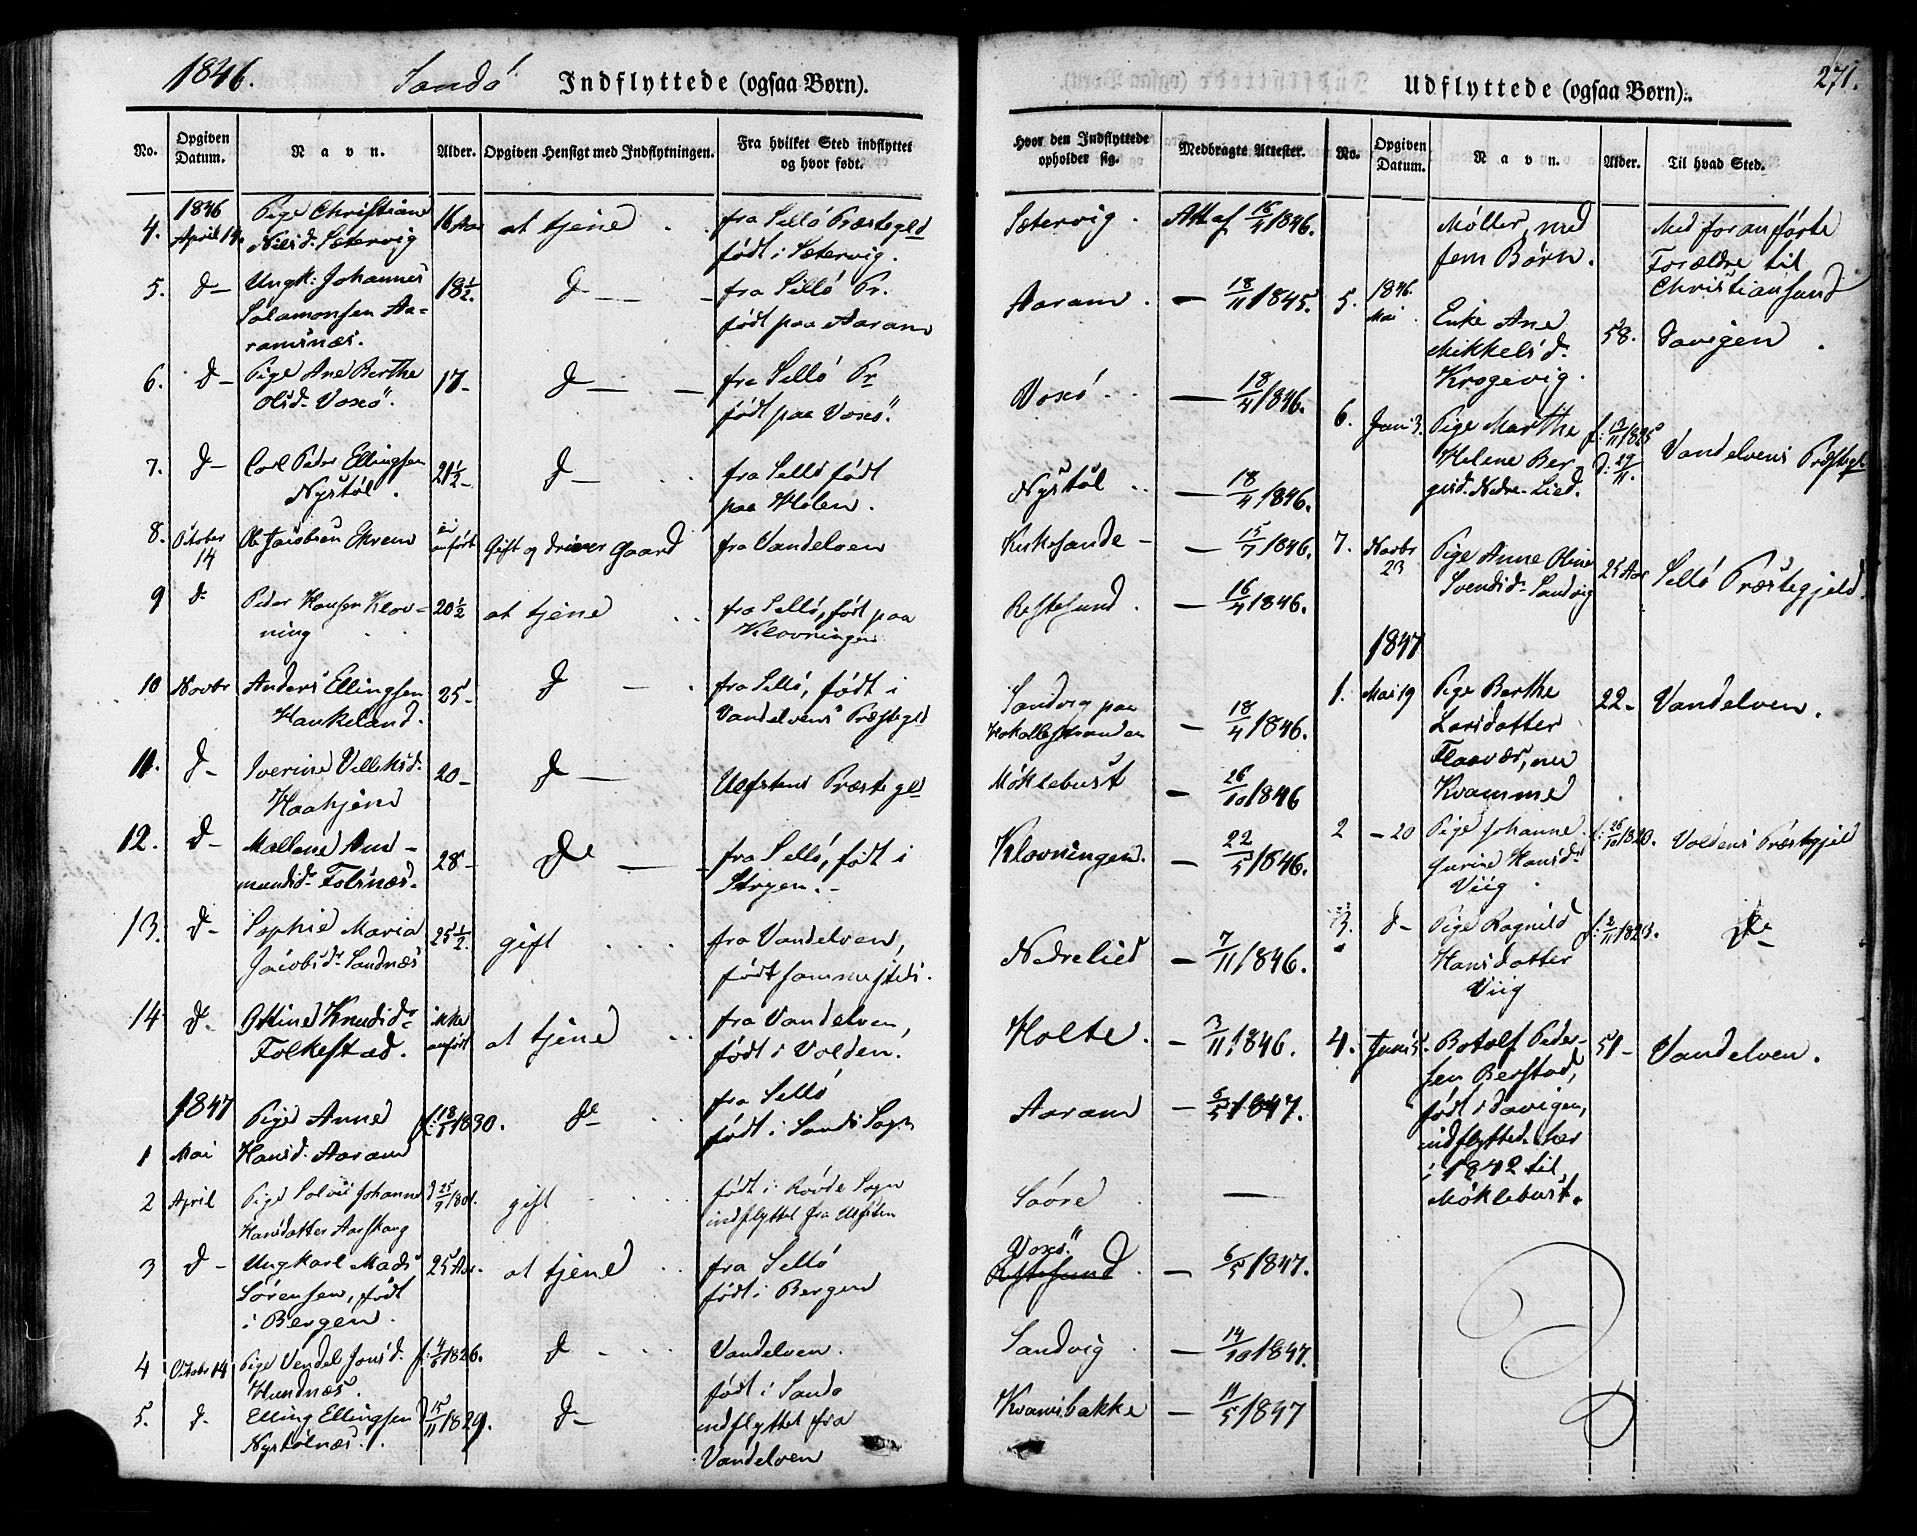 1846.
Sandö
Indflyttede (ogsaa Børn).
No.
Opgiven Datum.
Navn.
Alder.
Opgiven Hensigt med Indflytningen.
Fra hvilket Sted indflyttet og hvor født.
1846
4. April 14. Pige Christiane
Nilsd. Sætervig
16 Aar
at tjene
fra Sellö Præstegld
født i Sætervig.
5. d— Ungk: Johannes
Salamonsen Aa-
ramsnæs.
18½
d—
fra Sellö Pr.
født paa Aaram
6. d— Pige Ane Berthe
Olsd. Voxsö.
17—
d—
fra Sellö Pr
født paa Voxsö.
7. d— Carl Peder Ellingsen
Nystöl.
21½—
d—
fra Sellö født
paa Holen.
8. October 14
Ole Jacobsen Ekrem
ei anført
Gift og driver Gaard
fra Vandelven
9 d. Peder Hansen Klov-
ning
20½
at tjene
fra Sellö, født paa
Klovningen
10 Novbr Anders Ellingsen
Haukeland.
25—
d—
fra Sellö, født i
Vandelvens Præstegld
11. d— Iverine Villeksd.
Haahjem
20—
d—
Ulfstens Præstegld
12. d— Mallene Am-
mundsd. Folsnæs.
28—
do—
fra Sellö, født i
Stryen.—
13. d— Sophie Maria
Jacobsd. Sandnæs
25½.
gift
fra Vandelven,
født sammesteds.
14 d. Oline Knudsd.
Folkestad.
ikke anført
at tjene
fra Vandelven,
født i Volden.
1847
1 Mai
Pige Anne
Hansd. Aaram
f: 18/1 1830.
do
fra Sellö
født i Sands Sogn
2 April
Pige Solvei Johanne
Hansdatter Aarskaug
d 25/9 1801.
gift
født i Rovde Sogn
indflyttet fra Ulfsten
3 d— Ungkarl Mads
Sörensen, født
i Bergen.
25 Aar.
at tjene
fra Sellö
født i Bergen
4 October 14 Pige Vendel Jonsd.
Hundnæs.
f: 4/5 1826.
d—
Vandelven.
5. d. Elling Ellingsen
Nystölnæs.
d 15/11 1829.
d—
født i Sando
indflyttet fra
Vandelven
Udflyttede (ogsaa Børn).
271.
Hvor den Indflyttede opholder sig.
Medbragte Attester.
No.
Opgiven Datum.
Navn.
Alder.
Til hvad Sted.
Sætervig. Att af 16/4 1846.
Aaram. — 18/11 1845.
Voxsö. — 18/4 1846.
Nystöl — 18/4 1846.
Kirkesande — 15/7 1846.
Restesund. — 16/4 1846.
Sandvig paa
— 18/4 1846.
Möklebust — 26/10 1846
Klovningen. — 22/5 1846.
Nedrelied — 7/11 1846.
Holte. — 3/11 1846.
Aaram — 5/5 1847.
Saöre —
Voxsö.
Restesund — 6/5 1847.
Sandvig — 14/10 1847.
Kvamsbakke — 11/5 1847
Möller, med
fem Børn.
Med foranførte
Forældre til
Christiansund
5. 1846. Mai
Enke Ane
Mikkelsd.
Krogevig.
58.
Davigen.
6. Juni 3. Pige Marthe
Helene Ber-
gsd. Nedre-Lied.
f: 13/11 1825
d: 29/11.
Vandelvens Præstegld
7. Novbr 23
Pige Anne Oline
Svendsd. Sandvig
25 Aar
Sellö Præstegjeld
1847
1. Mai 19 Pige Berthe
Larsdatter
Flaavær, nu
Kvamme
22—
Vandelven.
2 —20 Pige Johanne
Gurine Hansd.
Viig
f: 26/10 1820.
Voldens Præstegjeld
3. d— Pige Ragnild
Hansdatter
Viig
f: 2/11 1823.
do
4. Juni 5. Botolf Peder-
sen Berstad,
født i Davigen,
indflytted her
i 1842 til
Möklebust.
51—
Vandelven.